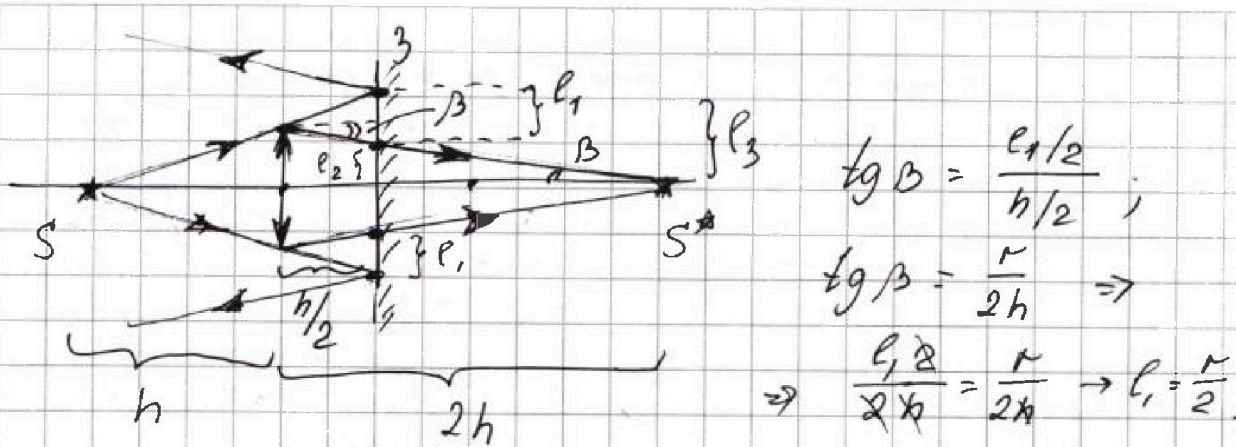 З
β
} l₁
l₂ {
β
} l₃
S
S*
} l₁
h/2
h
2h
tg β = (l₁/2)/(h/2) ;
tg β = r/2h ⇒
⇒ l₁2/2h = r/2h → l₁ = r/2.